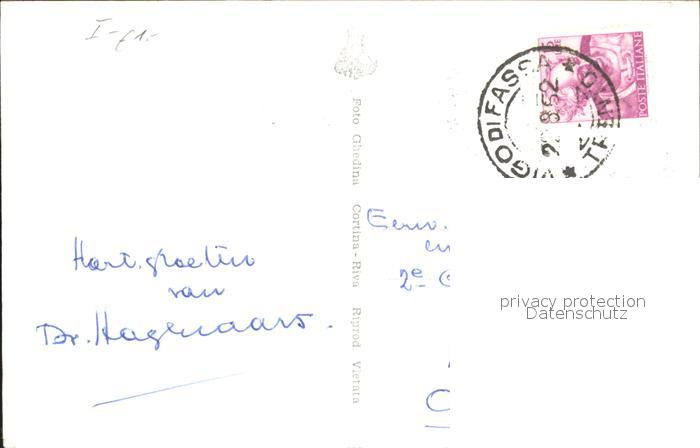 I-f1.-
POSTE ITALIANE
VIGO DI FASSA * TRENTO
Foto Ghedina Cortina - Riva Riprod. Vietata
Hart. groeten
van
Dr. Hagenaars.
Eerw.
en
2e
privacy protection
Datenschutz